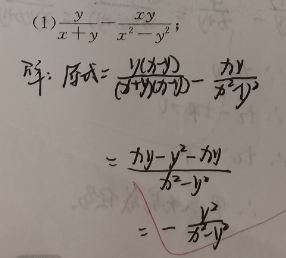 (1) \frac{y}{x+y} - \frac{xy}{x^2-y^2};
解：原式=\frac{y(x-y)}{(x+y)(x-y)} - \frac{xy}{x^2-y^2}
= \frac{xy-y^2-xy}{x^2-y^2}
= -\frac{y^2}{x^2-y^2}